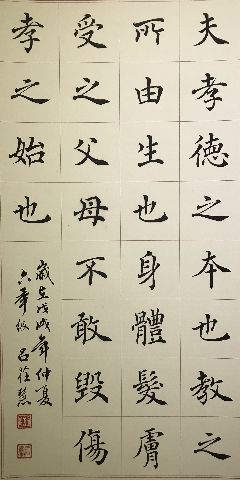 夫孝德之本也教之
所由生也身體髮膚
受之父母不敢毀傷
孝之始也
歲在戊戌年仲夏
六年級 呂